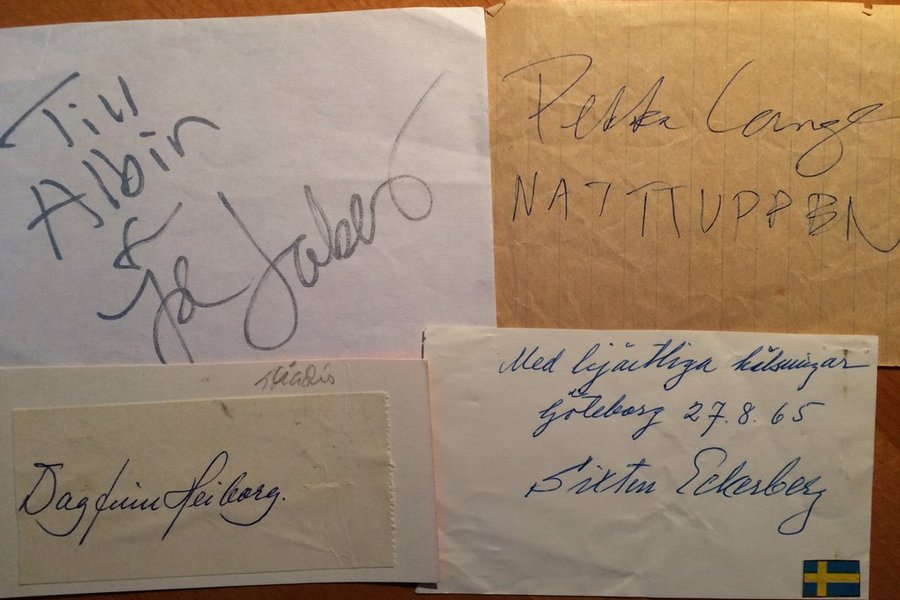 Till
Albin
Pekka Langer
NATTTUPPEN
Dagfinn Heiborg.
Med hjärtliga hälsningar
Göteborg 27.8.65
Sixten Eckerberg